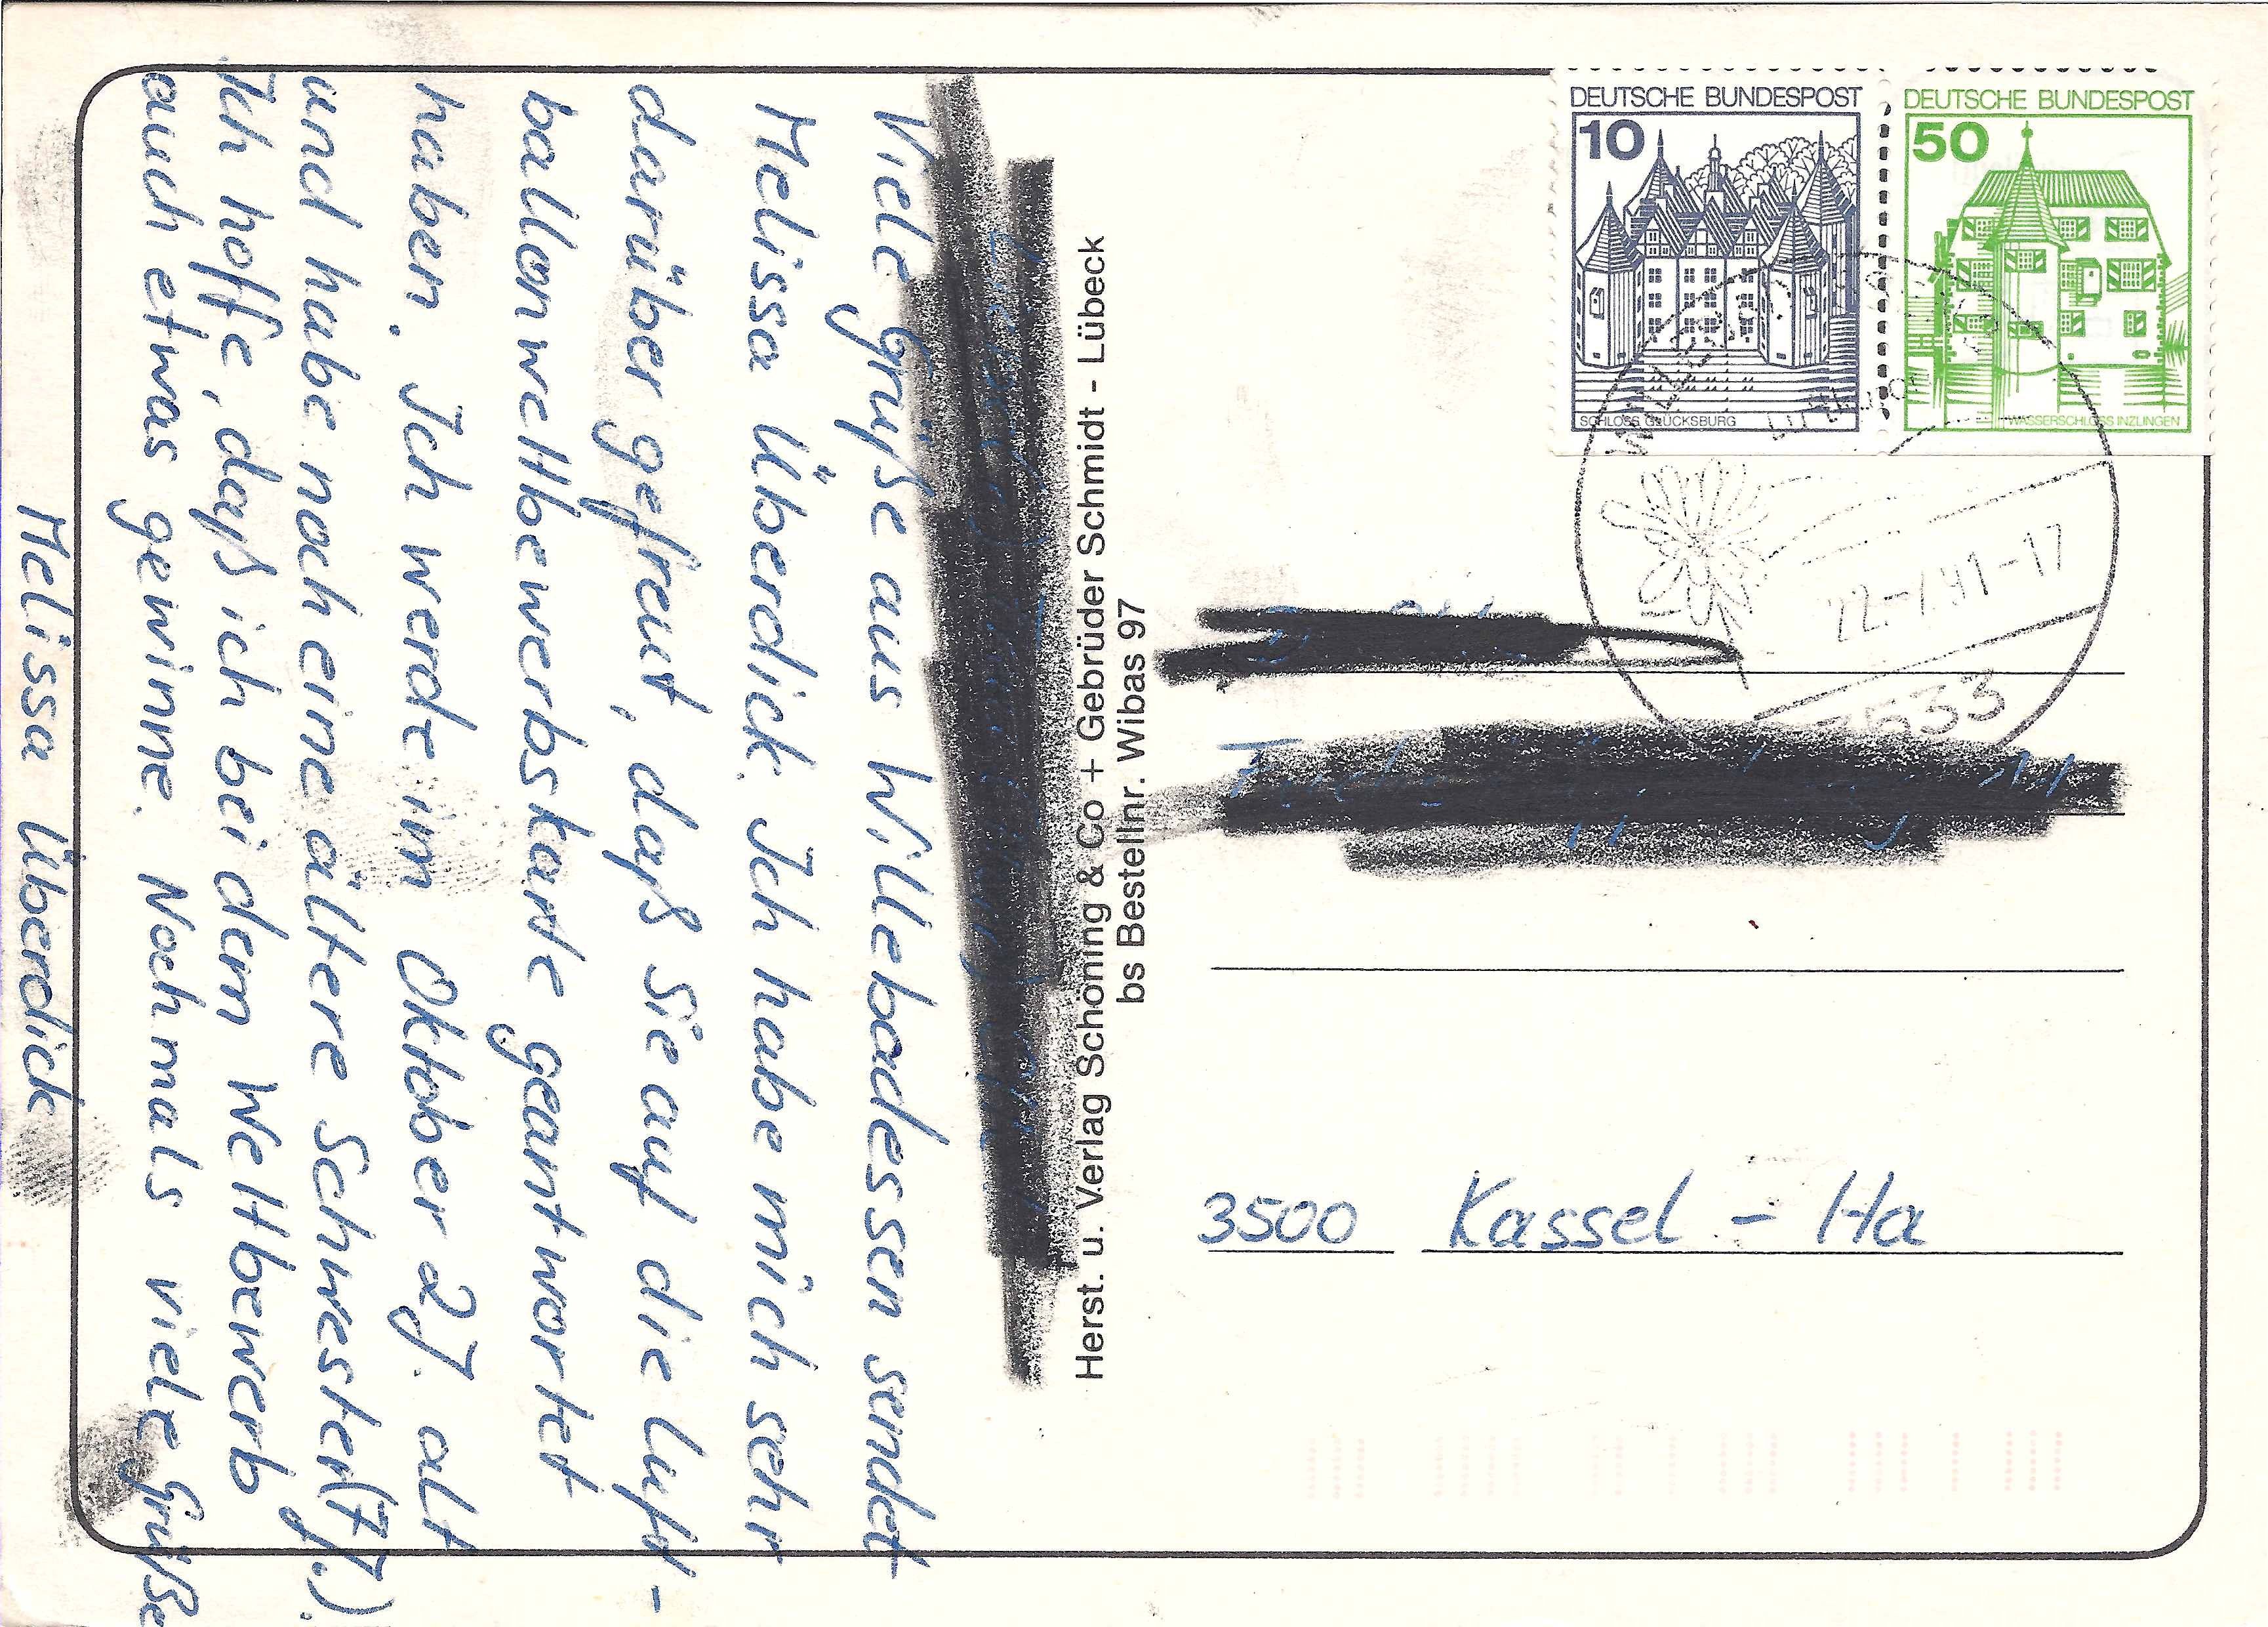 Viele Grüße aus Willebadessen sendet
Melissa Überdick. Ich habe mich sehr
darüber gefreut, daß Sie auf die Luft-
ballonwettbewerbskarte geantwortet
haben. Ich werde im Oktober 2J. alt
und habe noch eine ältere Schwester (7J.).
Ich hoffe, daß ich bei dem Wettbewerb
auch etwas gewinne. Nochmals viele Grüße
Melissa Überdick
Herst. u. Verlag Schöning & Co + Gebrüder Schmidt - Lübeck
bs Bestellnr. Wibas 97
DEUTSCHE BUNDESPOST
10
SCHLOSS GLÜCKSBURG
DEUTSCHE BUNDESPOST
50
WASSERSCHLOSS INZLINGEN
3500 Kassel - Ha